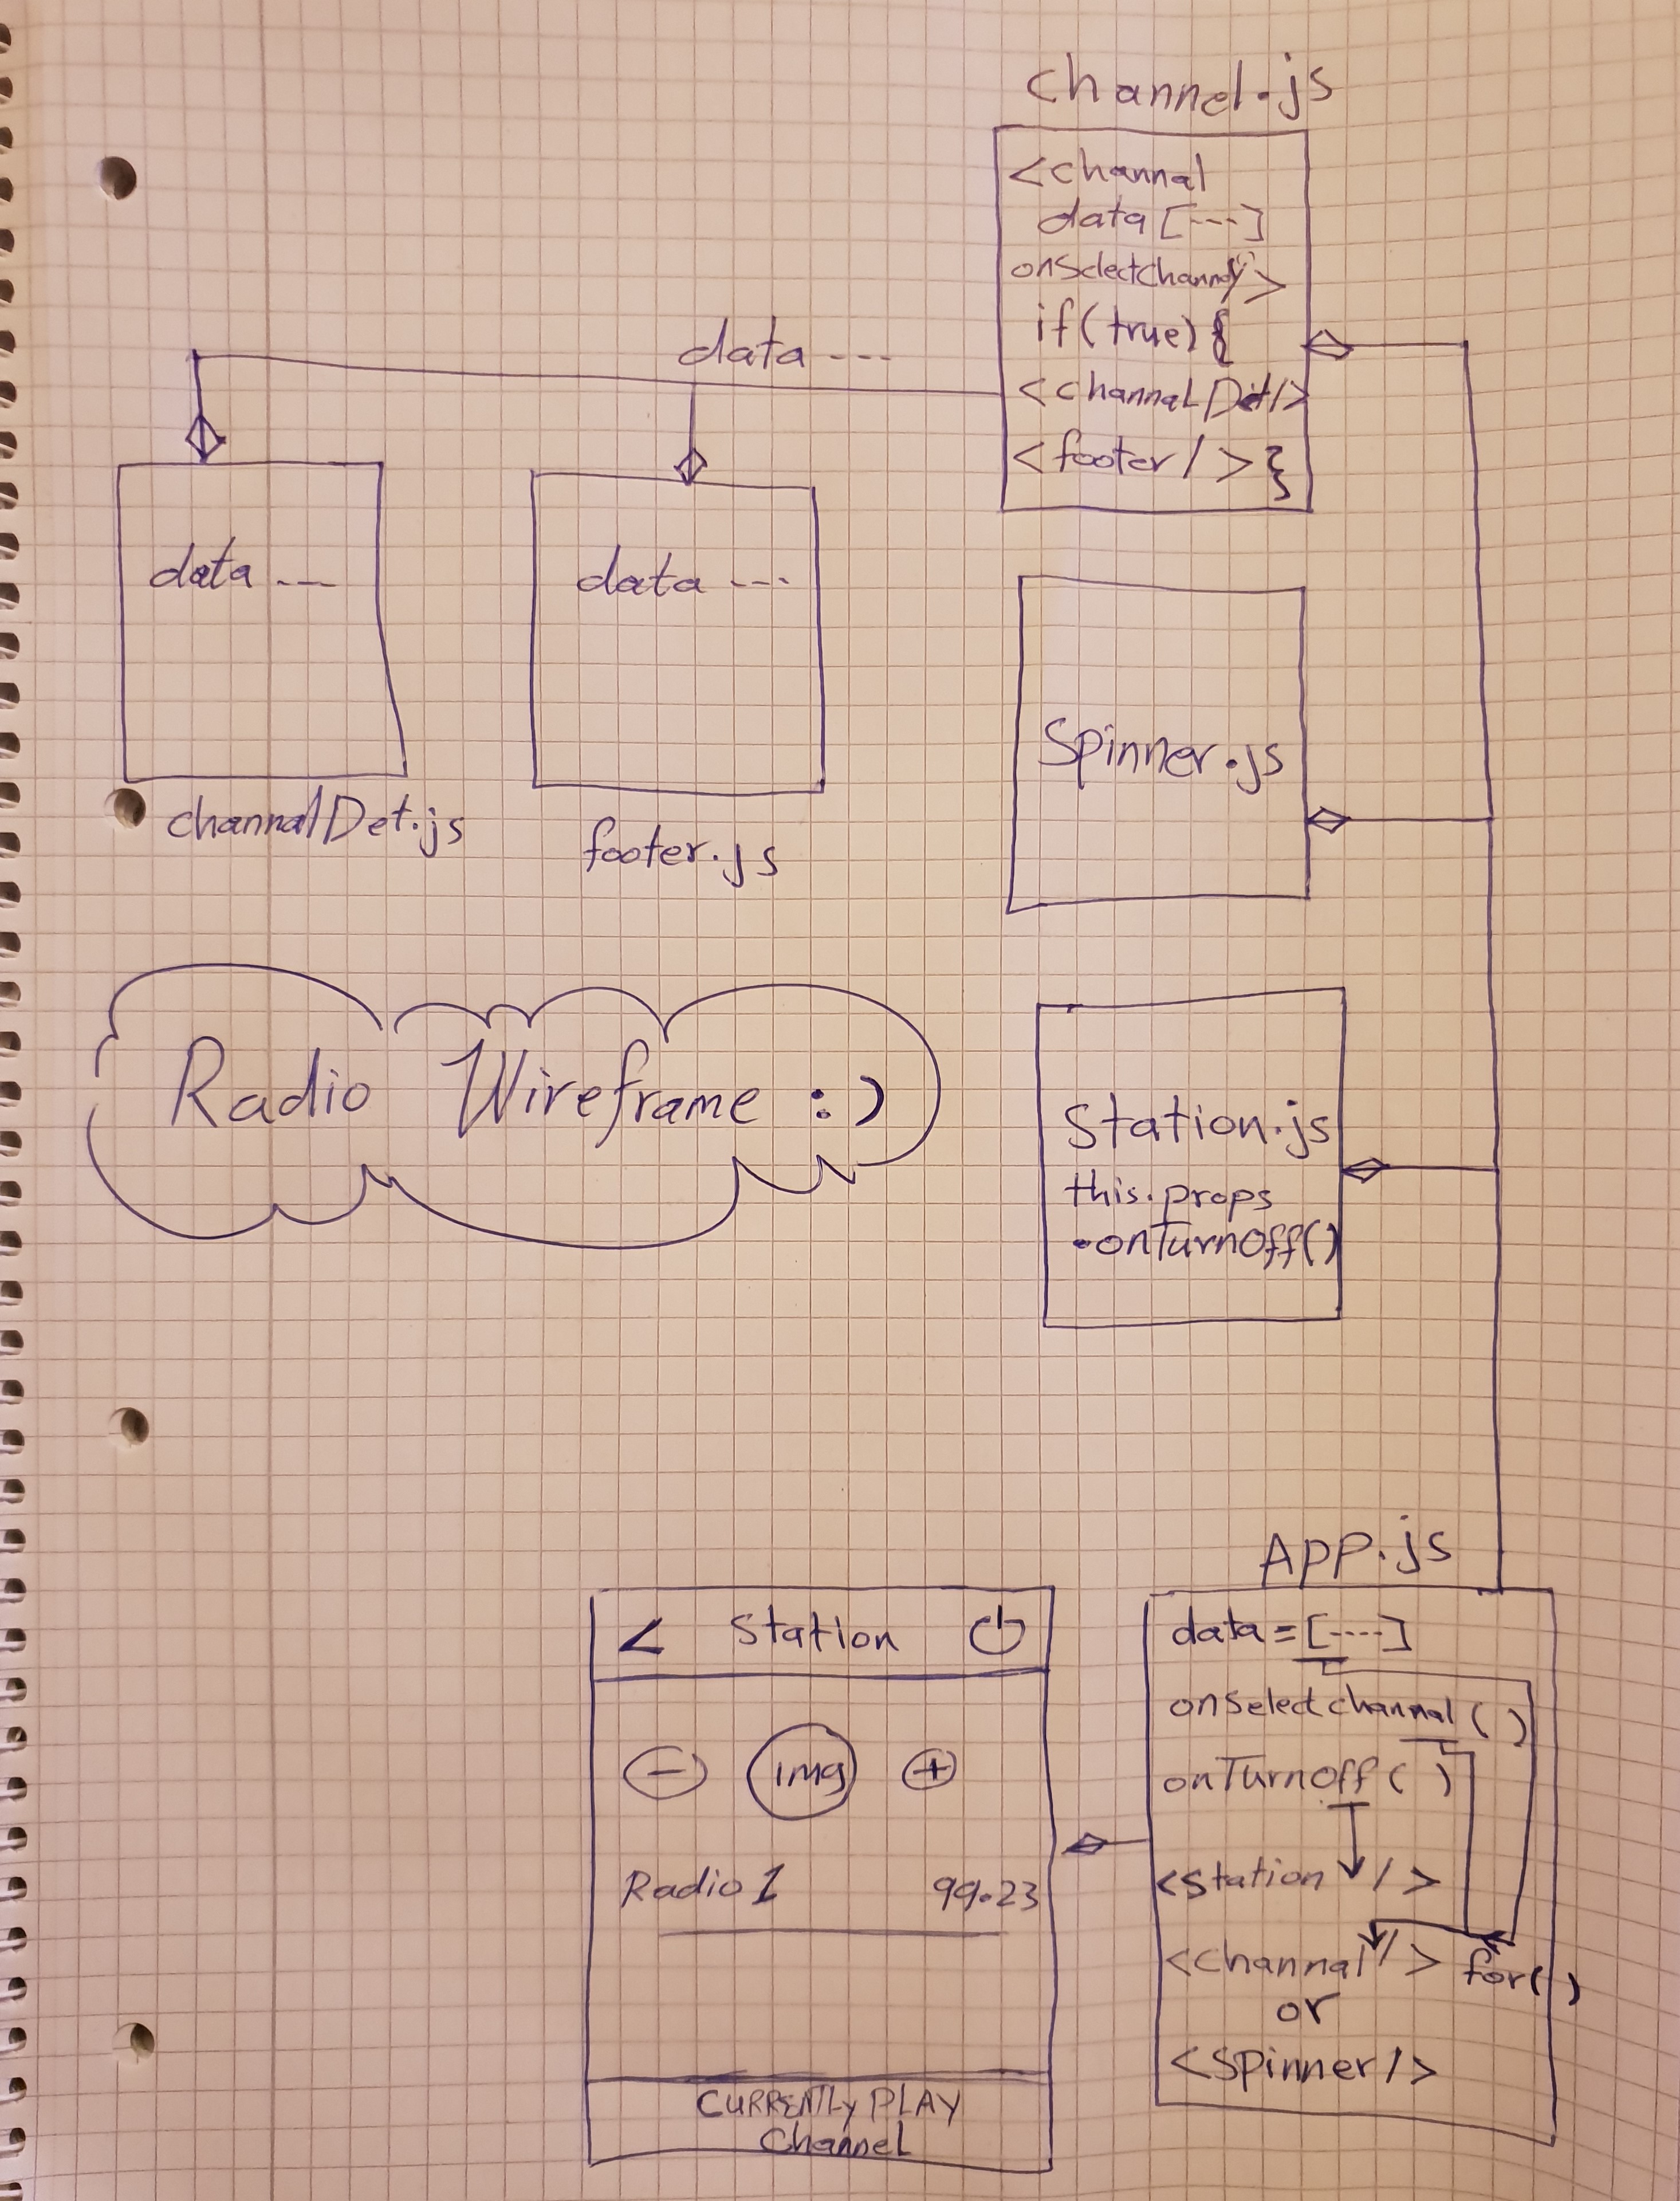 channel.js
<channal
data[---]
onSelectchannal>
if(true){
<channal Det/>
<footer/>}
data ---
data ---
data ---
channalDet.js
footer.js
Spinner.js
Radio Wireframe :)
Station.js
this.props
.onTurnOff()
App.js
data=[----]
onSelectchannal()
onTurnoff()
<station />
<channal/> for()
or
<spinner/>
< Station
- img +
Radio 1 99.23
CURRENTLY PLAY
Channel